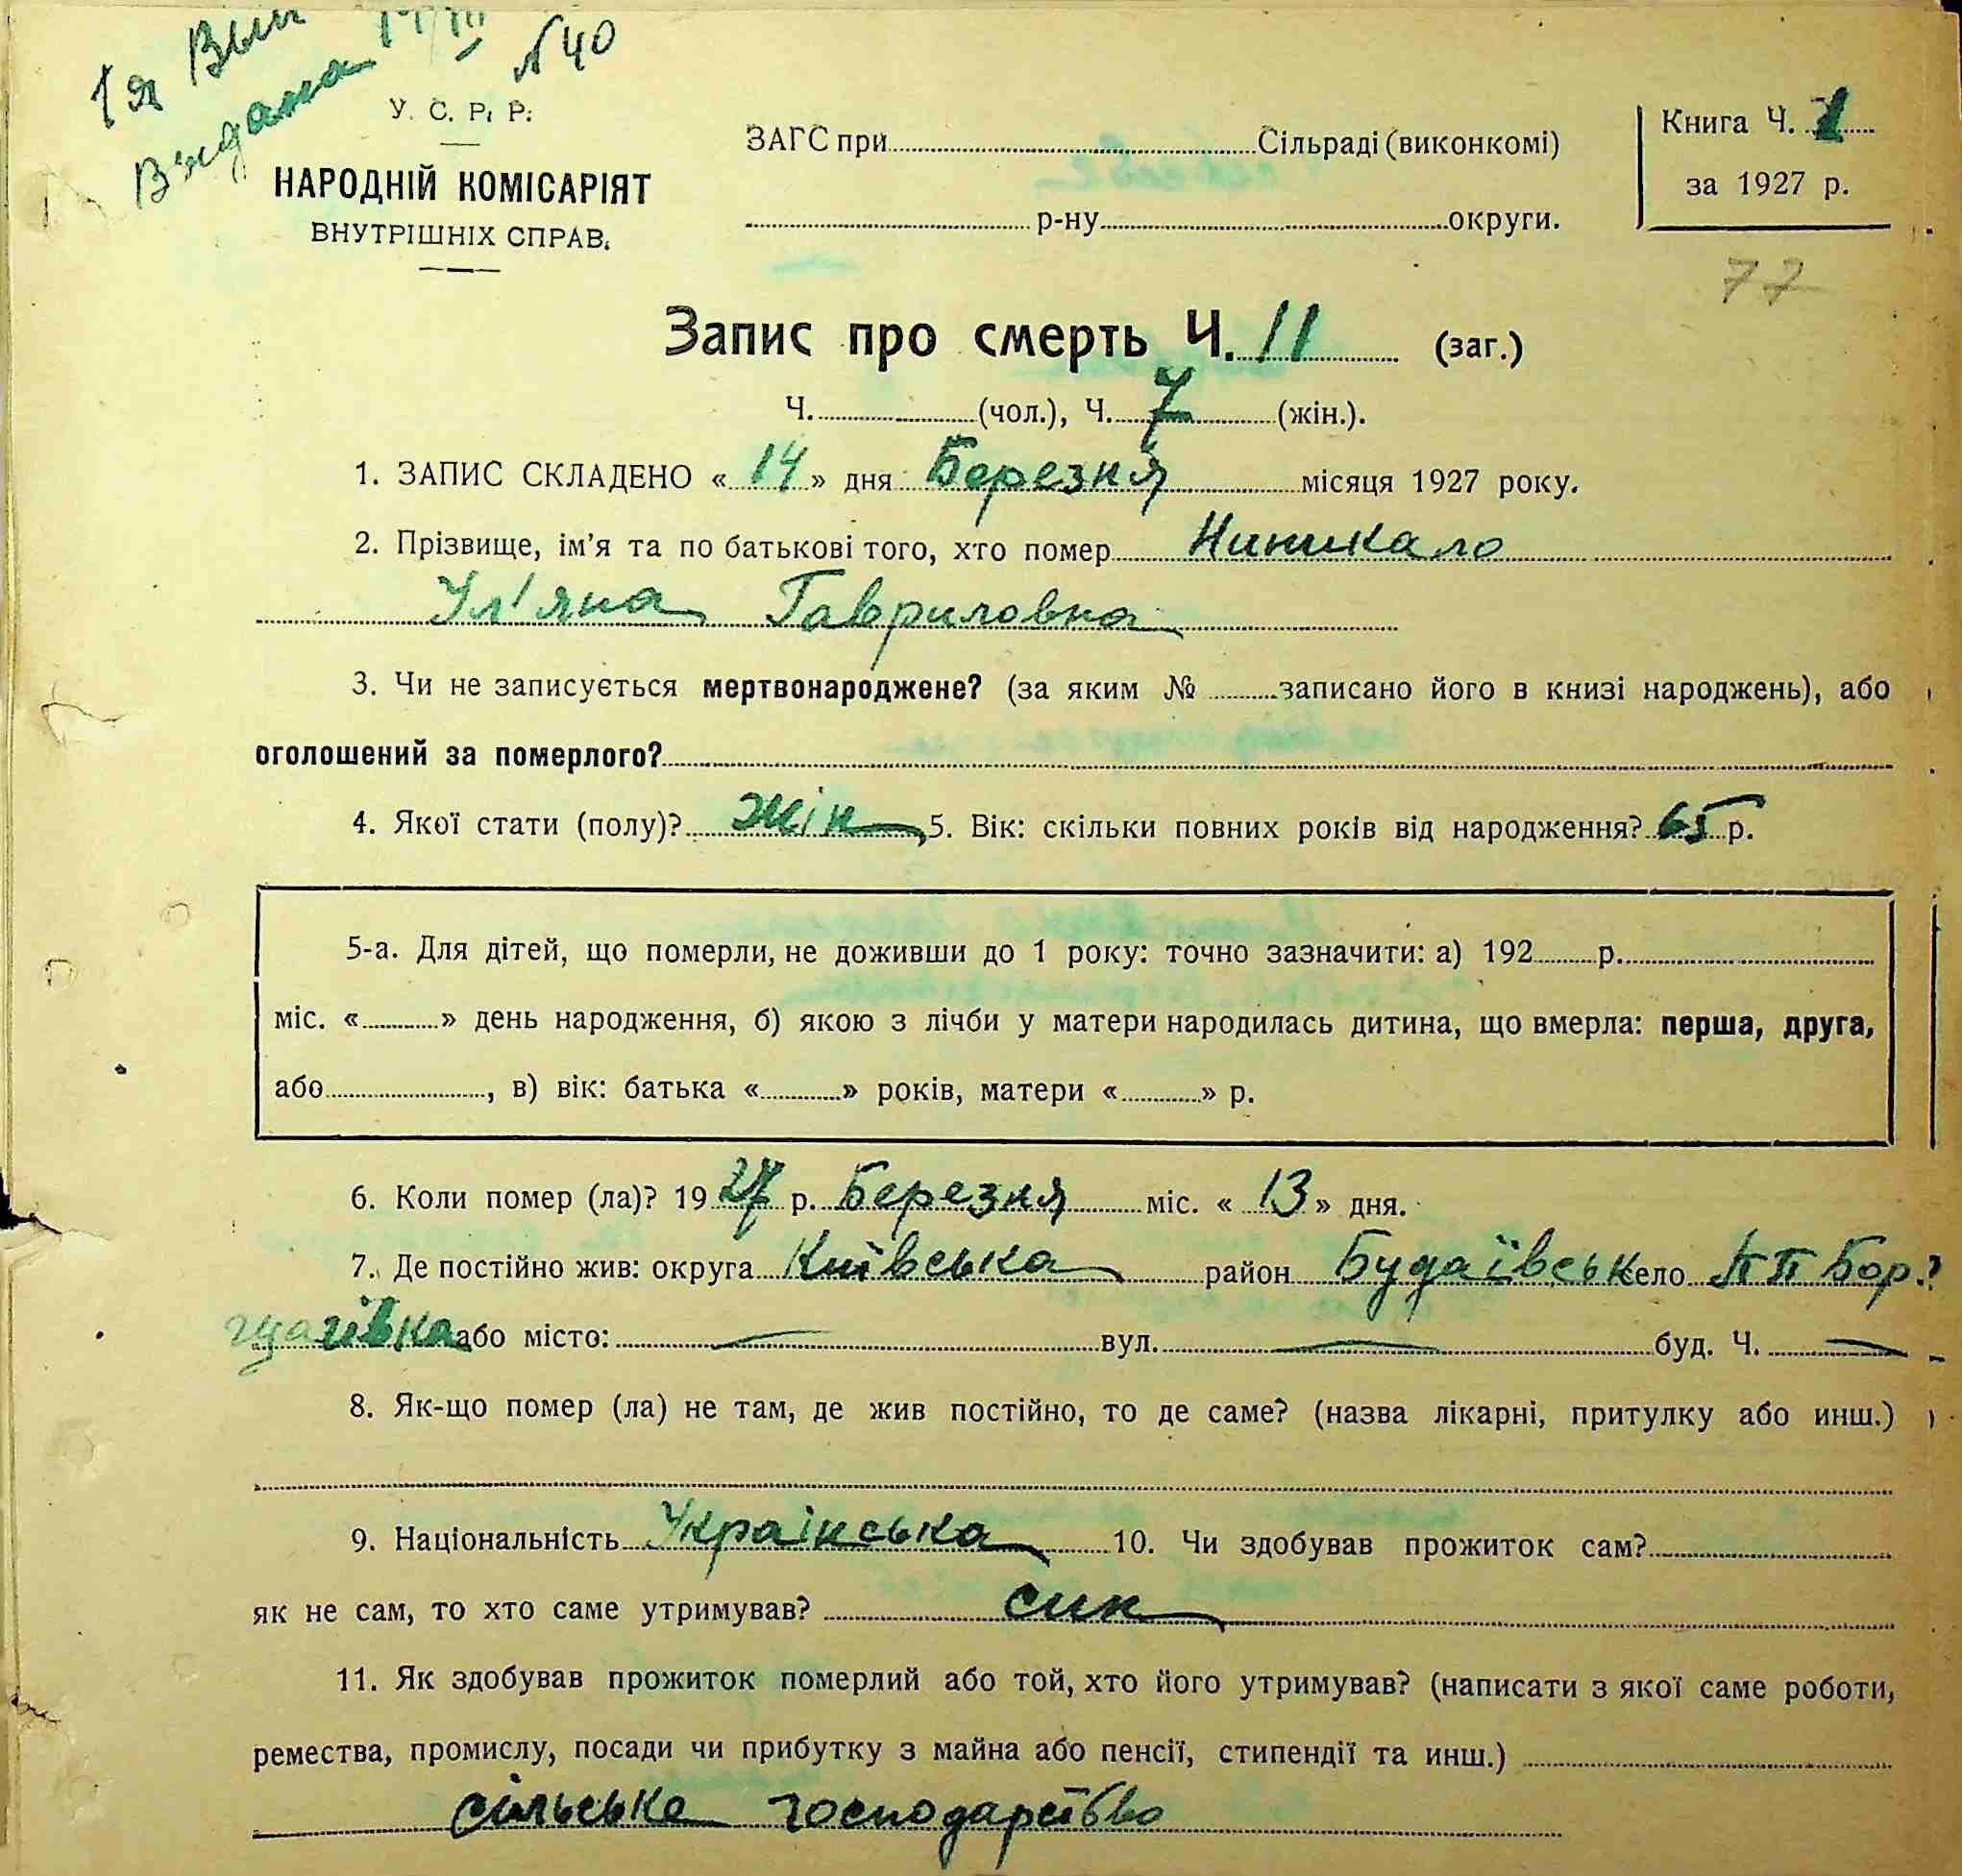 1я Вып
Видана 14/III №40
У. С. Р. Р.
НАРОДНІЙ КОМІСАРІЯТ
ВНУТРІШНІХ СПРАВ.
ЗАГС при Сільраді (виконкомі)
р-ну округи.
Книга Ч. 1
за 1927 р.
77
Запис про смерть Ч. 11 (заг.)
Ч. (чол.), Ч. 7 (жін.).
1. ЗАПИС СКЛАДЕНО « 14 » дня Березня місяця 1927 року.
2. Прізвище, ім'я та по батькові того, хто помер
Ул'яна Гавриловна
3. Чи не записується мертвонароджене? (за яким № записано його в книзі народжень), або
оголошений за померлого?
4. Якої стати (полу)? Жін 5. Вік: скільки повних років від народження? 65 р.
5-а. Для дітей, що померли, не доживши до 1 року: точно зазначити: а) 192 р.
міс. « » день народження, б) якою з лічби у матери народилась дитина, що вмерла: перша, друга,
або , в) вік: батька « » років, матери « » р.
6. Коли помер (ла)? 1927 р. Березня міс. « 13 » дня.
7. Де постійно жив: округа Київська район Будаївськ село ПП Бор.
щагівка або місто: — вул. — буд. Ч. —
8. Як-що помер (ла) не там, де жив постійно, то де саме? (назва лікарні, притулку або инш.)
9. Національність Українська 10. Чи здобував прожиток сам?
як не сам, то хто саме утримував? син
11. Як здобував прожиток померлий або той, хто його утримував? (написати з якої саме роботи,
ремества, промислу, посади чи прибутку з майна або пенсії, стипендії та инш.)
сільське господарство